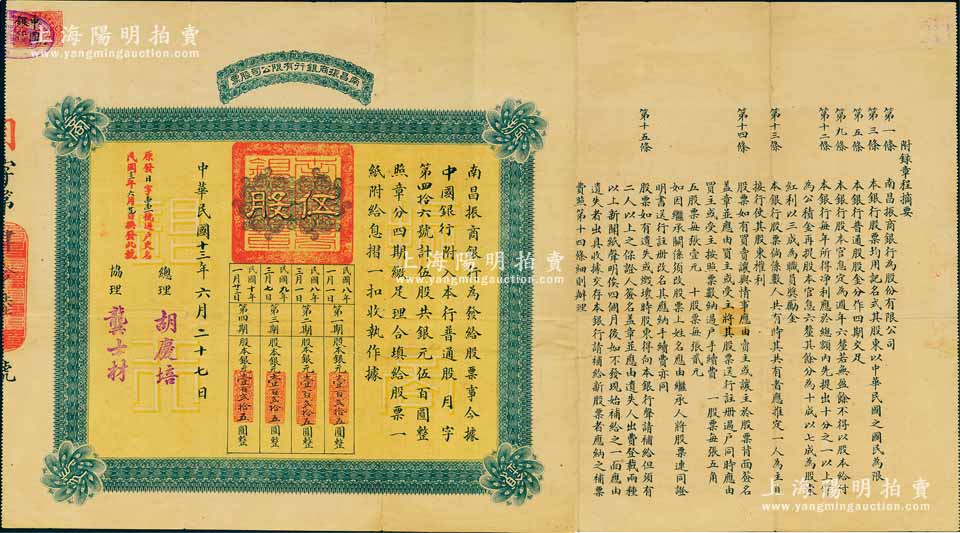 上海陽明拍賣
www.yangmingauction.com
南昌振商銀行有限公司股票
振
商
伍股
南昌振商銀行為發給股票事今據
中國銀行附入本行普通股月字
第四拾六號計伍股共銀元伍百圓整
照章分四期繳足理合填給股票一
紙附給息摺一扣收執作據
民國八年一月一日
第一期股本銀元壹百貳拾五圓整
民國八年三月一日
第二期股本銀元壹百貳拾五圓整
民國九年三月七日
第三期股本銀元壹百貳拾五圓整
民國十年一月十二日
第四期股本銀元壹百貳拾五圓整
中華民國十三年六月二十七日
總理 胡慶培
協理 龔士材
附錄章程摘要
第一條 南昌振商銀行為股份有限公司
第三條 本銀行股票均用記名式其股東以中華民國之國民為限
第五條 本銀行普通股股金分作四期交足
第九條 本銀行股本官息定為週年六釐若無盈餘不得以股本給付
第十二條 本銀行每年所得淨利應於總額內先提出十分之一以上作
為公積金再提股本官息六釐其餘分為十成以七成為股東
紅利以三成為職員獎勵金
第十三條 本銀行股票倘係數人共有時其共有者應推定一人為主且
按行使其股東權利
第十四條 股票如有買賣讓與情事應由賣主或讓主於股票背面簽名
蓋章並應由買主或受主將其股票送行註册過戶同時應由
買主或受主按照票數納過戶手續費 一股票每張五角
五股票每張壹元 十股票每張貳元
如因繼承關係須改股票上姓名應由繼承人將股票連同證
明書送行註册改名其應納手續費亦同
第十五條 股票如有遺失或燬壞時股東得向本銀行聲請補給但須有
二人以上之保證人簽名蓋章並應由遺失人出費登載兩種
以上新聞紙聲明俟四個月後如不發現始補給之一面應由
遺失者出具收據交存本銀行請補給新股票者應納之補票
費照第十四條細則辦理
上海陽明拍賣
www.yangmingauction.com